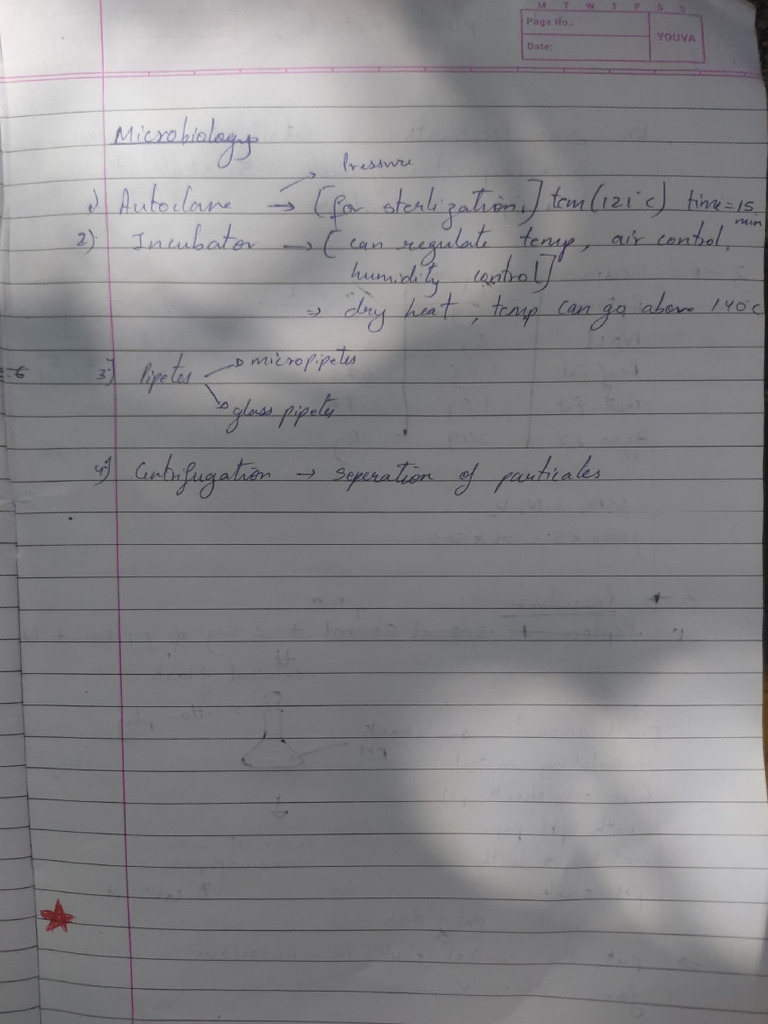 M T W T F S S
Page No.:
Date:
YOUVA
Microbiology
Pressure
1) Autoclave → [for sterlization.] tem (121°c) time = 15 min
2) Incubator → [can regulate temp, air control,
humidity control]
→ dry heat, temp can go above 140°c
3) Pipetes → micropipetes
→ glass pipetes
4) Centrifugation → seperation of particales